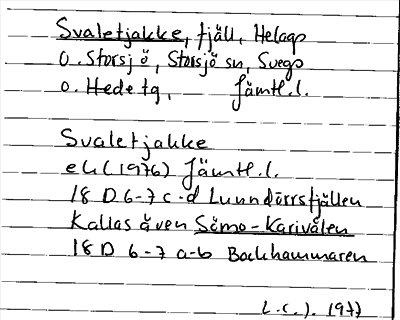 Svaletjakke, fjäll, Helags
o. Storsjö, Storsjö sn, Svegs
o. Hede tg, Jämtl.l.
Svaletjakke
ek (1976) Jämtl.l.
18 D 6-7 c-d Lunndörrsfjällen
Kallas även Sämo-Karivålen
18 D 6-7 a-b Backhammaren
L.C.J. 1977